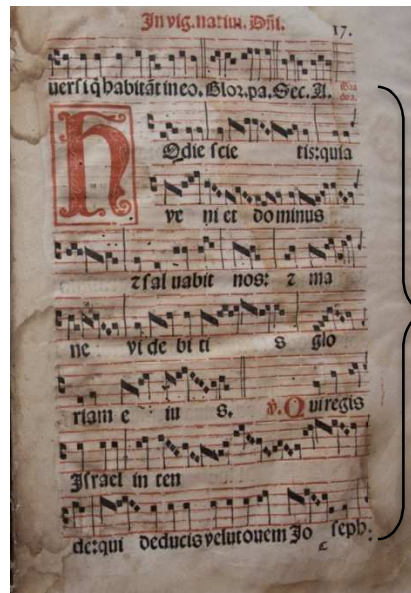 In vig. natiui. Dñi.
17.
uersi q̃ habitãt in eo. Glor. pa. Sec. A.
HOdie scie tis: quia
ve ni et do minus
⁊ sal uabit nos: ⁊ ma
ne vi de bi ti s glo
riam e iu s. ℣. Qui regis
Israel in ten
de: qui deducis velut ouem Jo seph: